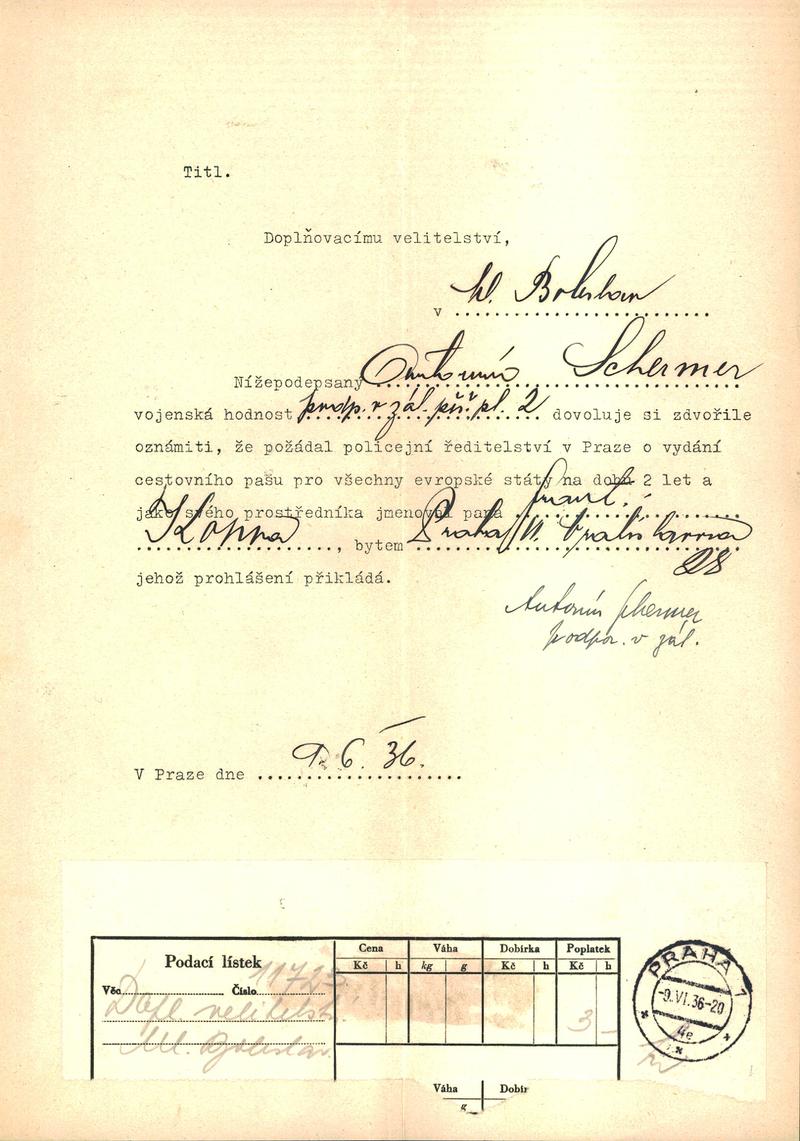 Titl.
Doplňovacímu velitelství,
v Ml. Boleslav
Nížepodepsaný Antonín Schermer
vojenská hodnost podp. v zál. pěš. pl. 2 dovoluje si zdvořile
oznámiti, že požádal policejní ředitelství v Praze o vydání
cestovního pašu pro všechny evropské státy na dobu 2 let a
jako svého prostředníka jmenoval pana Frant.
Koppa, bytem Praha VI. Vratislavova
28
jehož prohlášení přikládá.
Antonín Schermer
podpor. v zál.
V Praze dne 9. 6. 36.
Podací lístek
Cena Váha Dobírka Poplatek
Kč h kg g Kč h Kč h
Věc Číslo 11723
Dopl velitelství
Ml. Boleslav
3 -
PRAHA 1
-9.VI.36-20
4e
Váha Dobír
g